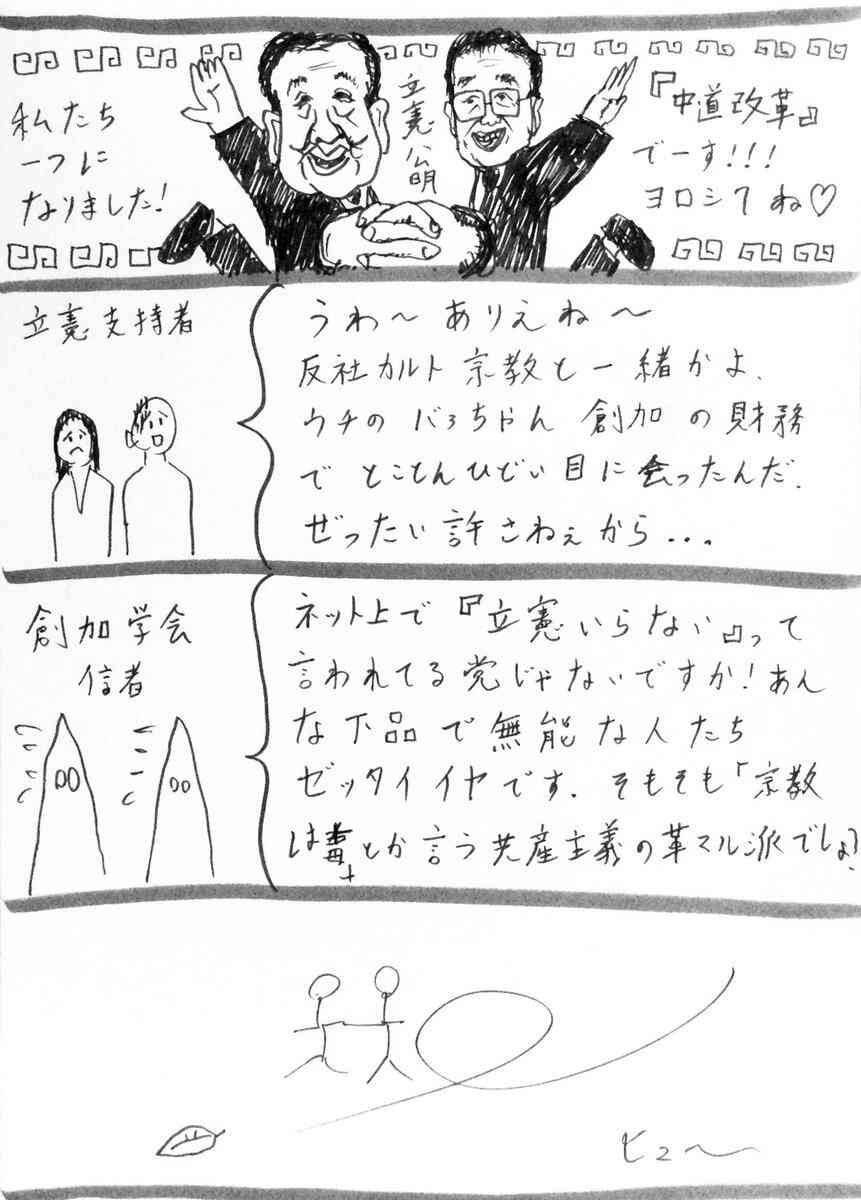 私たち
一つに
なりました!
立憲公明
『中道改革』
でーす!!!
ヨロシてね♡
立憲支持者
うわ〜ありえね〜
反社カルト宗教と一緒かよ.
ウチのばぁちゃん創加の財務
でとことんひどい目に会ったんだ.
ぜったい許さねぇから...
創加学会
信者
ネット上で『立憲いらない』って
言われてる党じゃないですか!あん
な下品で無能な人たち
ゼッタイイヤです.そもそも「宗教
は毒」とか言う共産主義の革マル派でしょ?
ヒュ〜